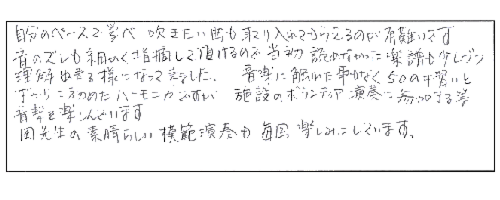 自分のペースで学べ 吹きたい曲も取り入れてもらえるのが有難いです
音のズレも細かく指摘して頂けるので当初読めなかった楽譜も少しづつ
理解出来る様になって来ました。 音楽に触れた事がなく 50の手習いと
ばかりに始めたハーモニカですが 施設のボランティア演奏に参加する等
音楽を楽しんでいます
岡先生の素晴らしい模範演奏も毎回楽しみにしています。